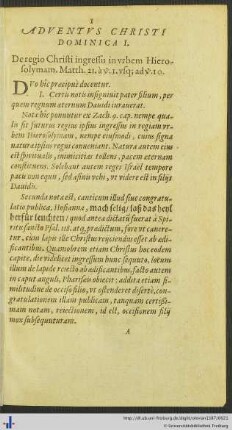 1
ADVENTVS CHRISTI
DOMINICA I.
De regio Christi ingressu in vrbem Hiero-
solymam. Matth. 21. à v. 1. vsq; ad v. 10.
DVo hic præcipuè docentur.
I. Certis notis insigniuit pater filium, per
quem regnum æternum Dauidi iurauerat.
Nota hîc ponuntur ex Zach. 9. cap. nempe qua-
lis sit futurus regius ipsius ingressus in regiam vr-
bem Hierosolymam, nempe eiusmodi, cuius signa
natura ipsius regni conueniant. Natura autem eius
est spiritualis, inimicitias tollens, pacem æternam
constituens. Solebant autem reges Israël tempore
pacis non equis, sed asinis vehi, vt videre est in filijs
Dauidis.
Secunda nota est, canticum illud siue congratu-
latio publica. Hosianna, mach selig: laß das heyl
her für leuchten: quod antea dictatũ fuerat à Spi-
ritu sancto Psal. 118. atq; prædictum, fore vt canere-
tur, cum lapis ille Christus reijciendus esset ab ædi-
ficantibus. Quamobrem etiam Christus hoc eodem
capite, die videlicet ingressum hunc sequuto, locum
illum de lapide reiecto ab ædificantibus, facto autem
in caput anguli, Pharisæis obiecit: addita etiam si-
militudine de occiso filio, vt ostenderet diserte, con-
gratulationem illam publicam, tanquam certissi-
mam notam, reiectionem, id est, occisionem filij
mox subsequuturam.
A
http://dl.ub.uni-freiburg.de/diglit/olevian1587/0021
© Universitätsbibliothek Freiburg